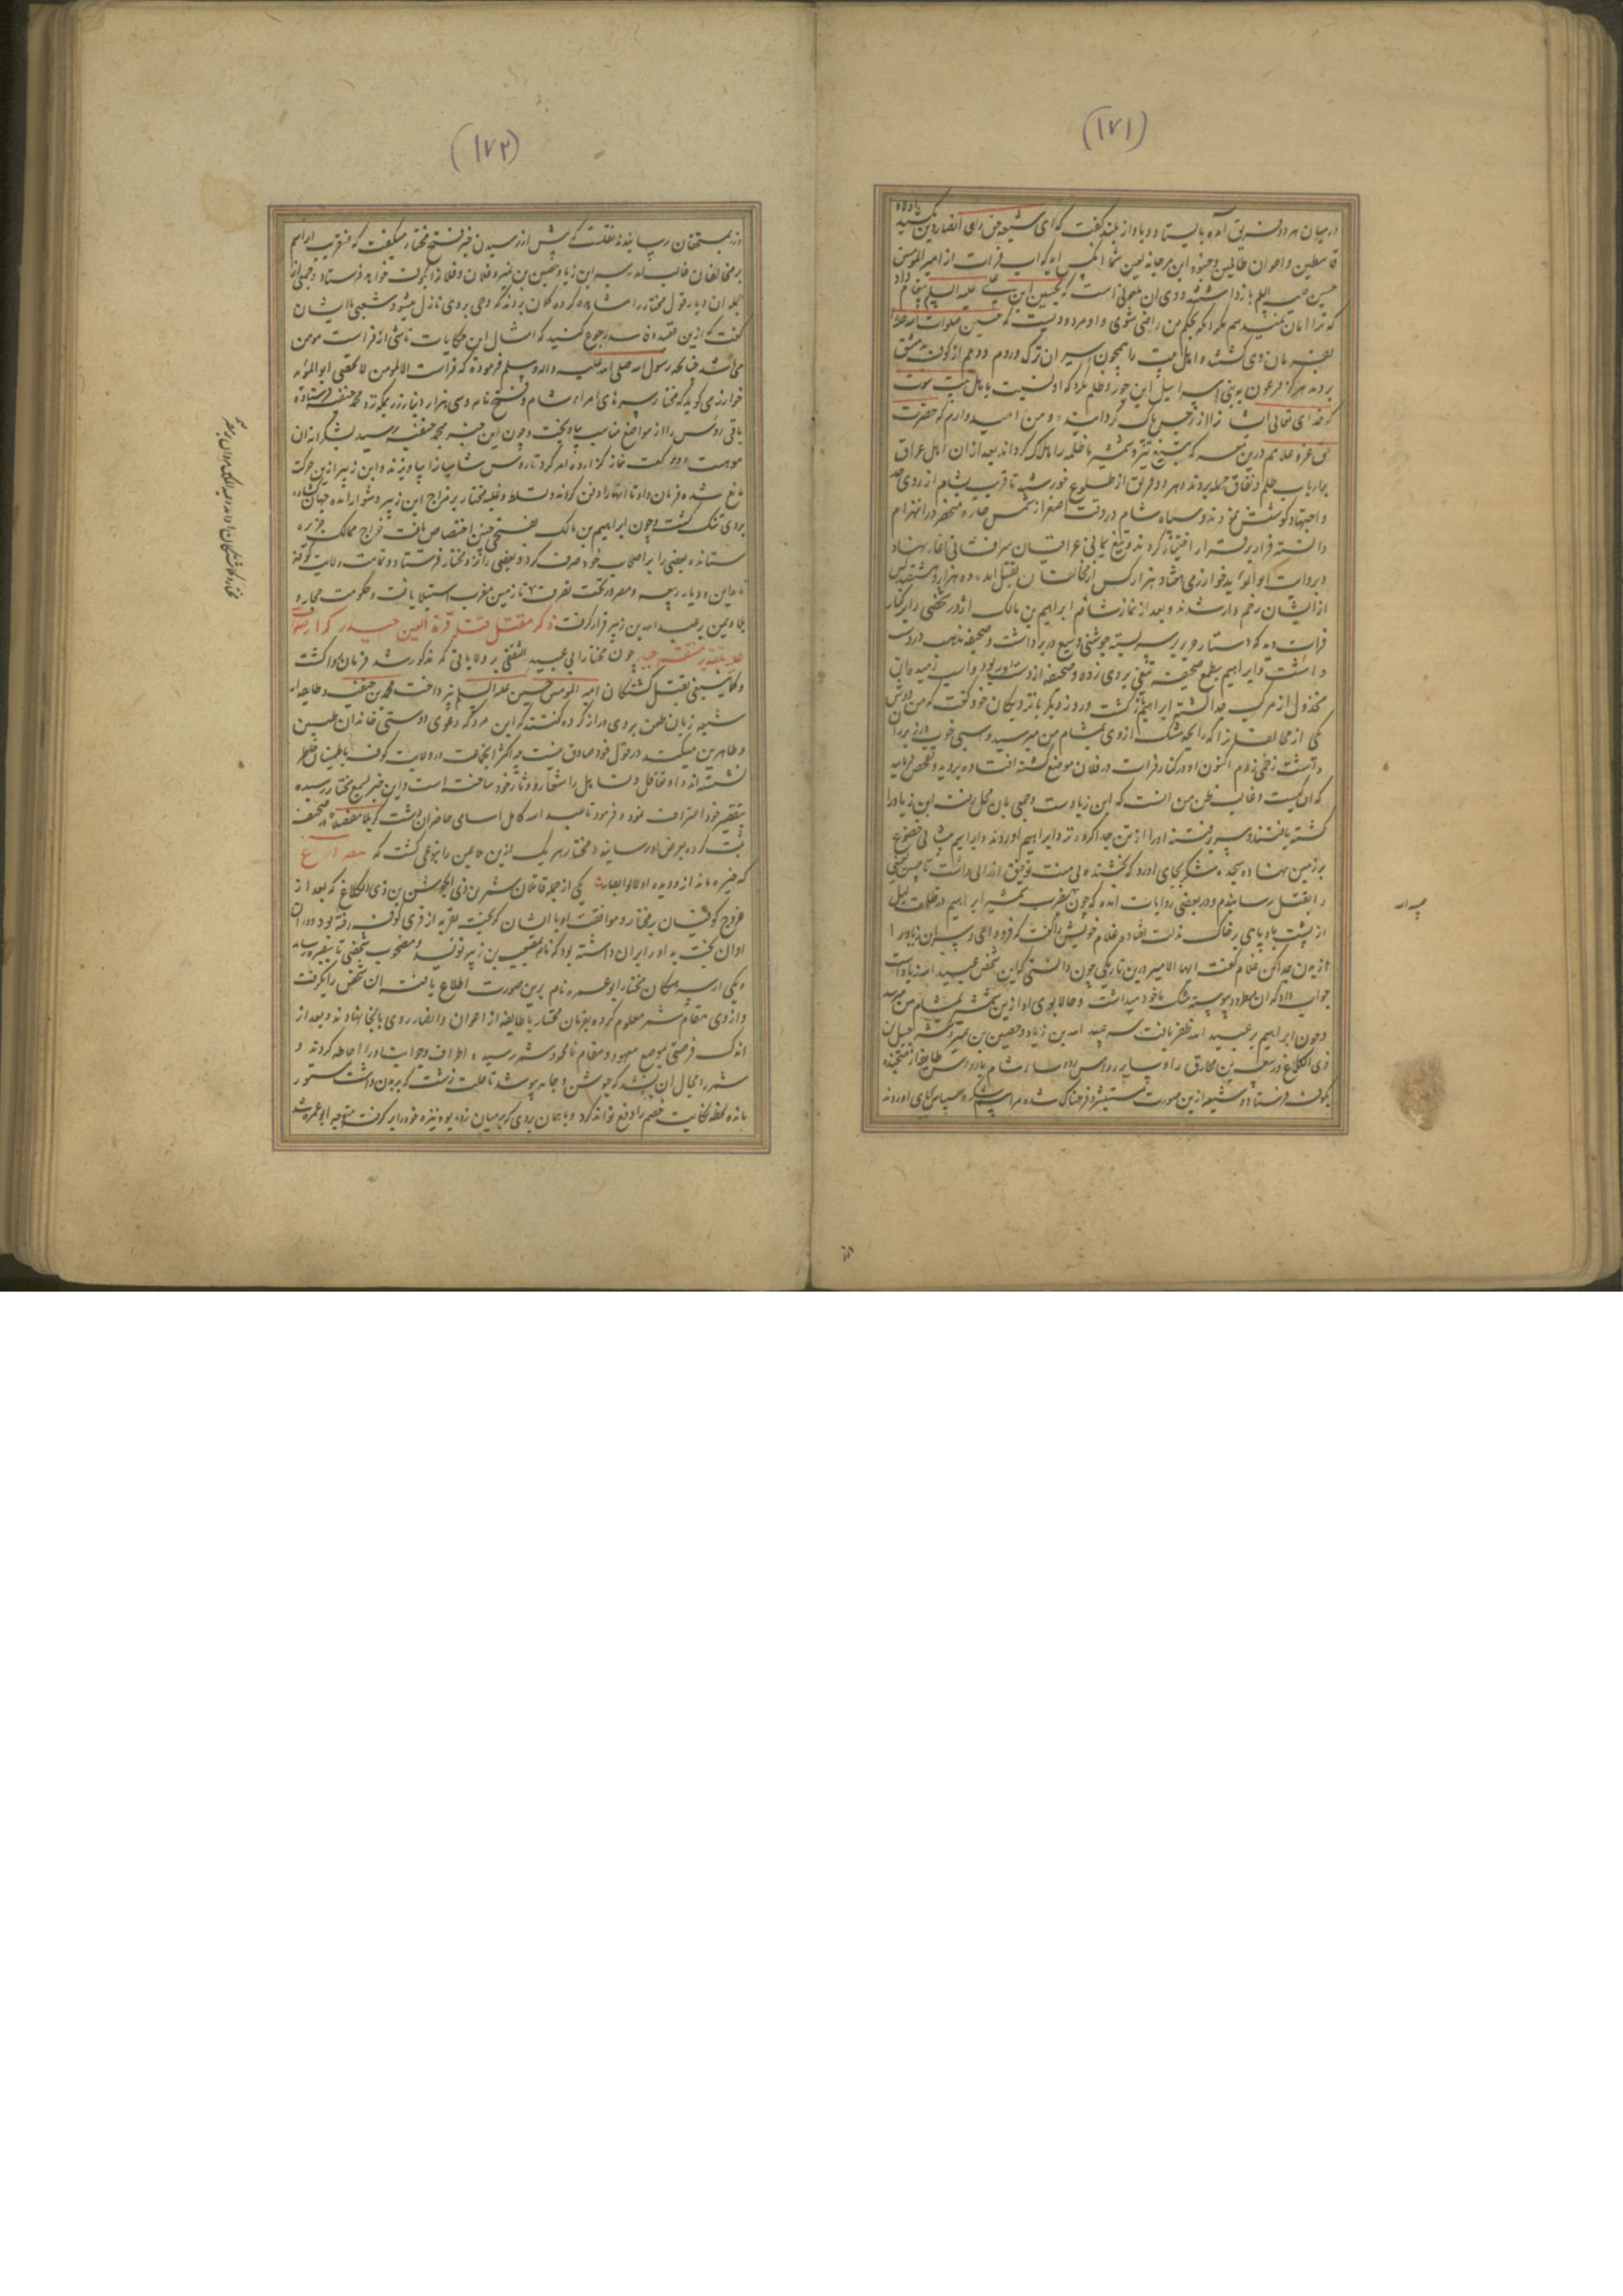 (۱۷۱)
درمیان هر دو فریق آمده بایستاد و بآواز بلند گفت که ای شیعه حق و ای انصار دین
قاسطین و اعوان ظالمین و جنود ابن مرجانه لعین شما انکس اید که آب فرات از امیر المومنین
حسین علیه السلم باز داشتند و وی آن ملعونی است که بحسین بن علی علیه السلم پیغام داد
که ترا امان نمیدهم مگر آنکه بحکم من راضی شوی و او مردودیست که حسین صلوات الله علیه
بفرمان وی کشته و اهل بیت را همچون اسیران ترک و روم و دیلم از کوفه بدمشق
بردند هرگز فرعون به بنی اسرائیل این جور و ظلم نکرد که او نسبت باهل بیت نبوت
که خدای تعالی ایشانرا از رجس پاک گردانید و من امیدوارم که حضرت
حق عز و علا هم درین معرکه به تیغ تیز و شمشیر ما ظلمه را هلاک گرداند بعد ازان اهل عراق
بر ارباب ظلم و نفاق حمله بردند و هر دو فریق از طلوع خورشید تا قریب بشام از روی جد
و اجتهاد کوشش نمودند و سپاه شام در وقت اصفرار شمس چاره منحصر در انهزام
دانسته فرار بر قرار اختیار کردند و تیغ یمانی عراقیان سرافشانی آغاز نهاد
و بروایت ابو المؤید خوارزمی هفتاد هزار کس از مخالفان بقتل آمد و ده هزار و هشتصد کس
از ایشان زخم دار شدند و بعد از نماز شام ابراهیم بن مالک اژدر شخصی را بر کنار
فرات دید که دستار حریر بر سر بسته جوشنی وسیع در بر داشت و صحیفه مذهب در دست
داشت و ابراهیم بطمع صحیفه تیغی بروی زده و صحیفه از دست او ربود و اسب رمیده و آن
مخذول از مرکب جدا گشته ابراهیم بازگشت و روز دیگر با نزدیکان خود گفت که من دوش
یکی از مخالفانرا که رایحه مشک از وی بمشام من میرسید و اسبی خوب در زیر ران
داشت زخمی زدم اکنون او در کنار فرات در فلان موضع کشته افتاده بروید و تفحص نمایید
که آن کیست و غالب ظن من آنست که ابن زیادست و جمعی بآن محل رفته ابن زیاد را
کشته یافتند و سر پرفتنه او را از تن جدا کرده نزد ابراهیم آوردند و ابراهیم جبین خضوع
بر زمین نهاده سجده شکر بجای آورد که بخشنده بی منت توفیق ارزانی داشت تا چنین لعینی
را بقتل رسانیدم و در بعضی روایات آمده که چون بضرب شمشیر ابراهیم در ظلمات لیل
از پشت باد پای بر خاک مذلت افتاد غلام خویش را گفت که فرود آی و سر ابن زیاد را
از بدن جدا کن غلام گفت ایها الامیر درین تاریکی چون دانستی که این شخص عبید الله زیاد است
جواب داد که آن مطرود پیوسته مشک با خود میداشت و حالا بوی او ازین شمشیر بمشام من میرسد
و چون ابراهیم بر عبید الله ظفر یافت سر عبید الله بن زیاد و حصین بن نمیر و شرحبیل بن
ذی الکلاع و ربیعه بن مخارق را و سایر رؤس رؤساء شام با رؤس طایفه از متجنده
بکوفه فرستاد و شیعه ازین صورت مستبشر و فرحناک شده مراسم شکر و سپاس بجای آوردند
(۱۷۲)
و زر بمستحقان رسانیدند نقلست که پیش از رسیدن خبر فتح مختار میگفت که عنقریب ابراهیم
بر مخالفان غالب آمده سر ابن زیاد و حصین بن نمیر و فلان و فلانرا بکوفه خواهد فرستاد و جمعی از
جهله آن دیار قول مختار را مشاهده کرده گمان بردند که وحی بروی نازل میشود شعبی با ایشان
گفت که ازین عقیده فاسد رجوع کنید که امثال این حکایات ناشی از فراست مومن
می باشد چنانکه رسول الله صلی الله علیه و اله و سلم فرموده که فراست المومن لا تخطی ابو المؤید
خوارزمی گوید که مختار سرهای امراء شام و فتح نامه و سی هزار دینار زر بمکه نزد محمد حنفیه فرستاده
باقی رؤس را از مواضع مناسب بیاویخت و چون این خبر بمحمد حنفیه رسید بشکرانه آن
موهبت دو رکعت نماز گزارده امر کرد تا رؤس شامیانرا بیاویزند و ابن زبیر ازین حرکت
مانع شده فرمان داد تا آنها را دفن کردند و تسلط و غلبه مختار بر مزاج ابن زبیر دشوار آمده جهان گشاده
بروی تنگ گشت و چون ابراهیم بن مالک بفتحی چنین اختصاص یافت خراج ممالک جزیره
ستانده بعضی را بر اصحاب خود صرف کرد و بعضی را نزد مختار فرستاد و تمامت ولایت کوفه
تا مداین و دیار ربیعه و مضر در تحت تصرف تا زمین مغرب استیلا یافت و حکومت حجاز و
یمن بر عبد الله بن زبیر قرار گرفت ذکر مقتل قتله قرة العین حیدر کرار
بتقدیر منتقم جبار چون مختار ابی عبید الثقفی بر ولایاتی که مذکور شد فرمان روا گشت
و کما ینبغی بقتل کشندگان امیر المومنین حسین علیه السلم نپرداخت محمد بن حنفیه و طایفه از
شیعه زبان طعن بروی دراز کرده گفتند که این مرد که دعوی دوستی خاندان طیبین
و طاهرین میکند در قول خود صادق نیست چه اکثر آنجماعت در ولایت کوفه باطمینان خاطر
نشسته اند و او تغافل و تساهل را شعار و دثار خود ساخته است و این خبر بسمع مختار رسیده
بتقصیر خود اعتراف نمود و فرمود تا عبد الله کامل اسامی حاضران دشت کربلا مفصلا در صحیفه
ثبت کرده بعرض او رسانید و مختار هر یک ازین ملاعین را بنوعی کشت که مصراع
که خیره ماند از و دیده اولوالابصار یکی از جمله قاتلان شمر بن ذی الجوشن بن ذی الکلاع که بعد از
خروج کوفیان بر مختار و موافقت او با ایشان گریخته بقریه از قری کوفه رفته بود و دران
اوان بخت بد او را بران داشته بود که نامه بمصعب بن زبیر نویسد و مصحوب شخصی ببصره رساند
و یکی از سرهنگان مختار ابو عمره نام برین صورت اطلاع یافته آن شخص را بگرفت
و از وی مقام شمر معلوم کرده بفرمان مختار با طایفه از اعوان و انصار روی بآنجا نهادند و بعد از
اندک فرصتی بموضع معهود و مقام نامحمود شمر رسیده اطراف و جوانب او را احاطه کردند و
شمر را مجال آن نشد که جوشن و جامه پوشد تا علت زشت که برون داشت مستور
مانده لحظه نکایت خصم را دفع تواند کرد و با همان بردی که بر میان زده بود نیزه خود را بر گرفته متوجه ابو عمره شد